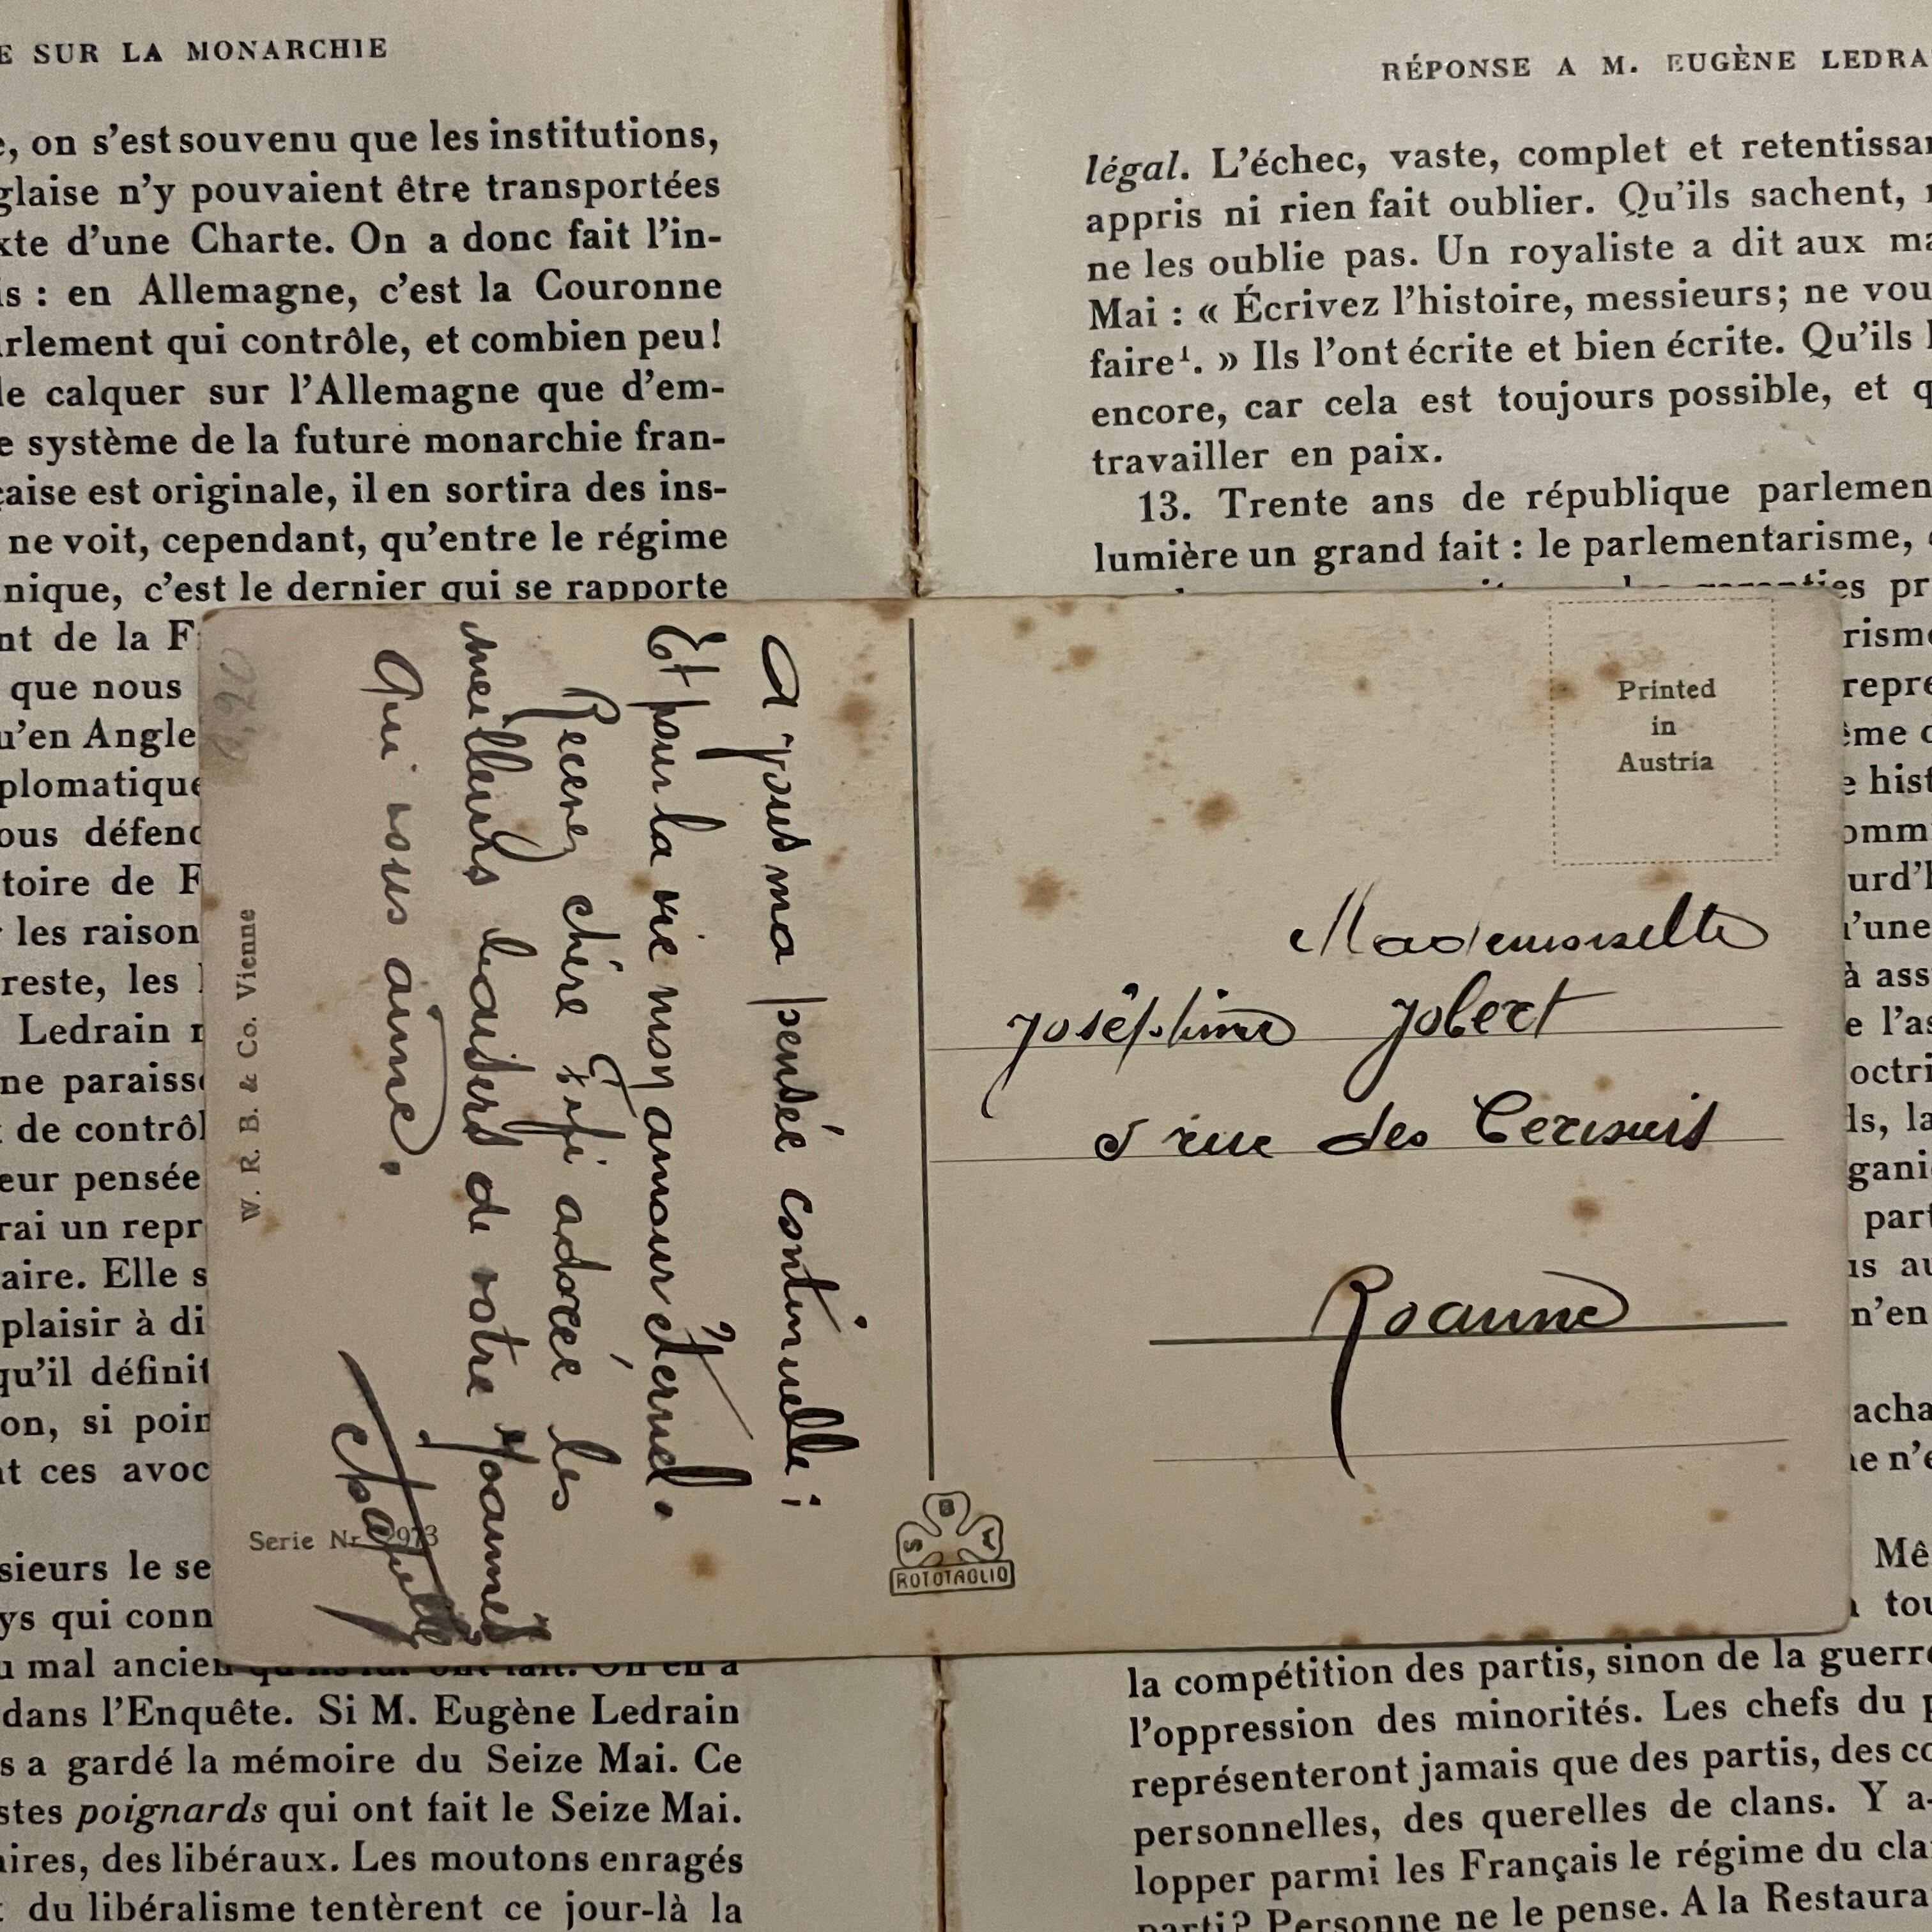 E SUR LA MONARCHIE
e, on s'est souvenu que les institutions,
glaise n'y pouvaient être transportées
xte d'une Charte. On a donc fait l'in-
is : en Allemagne, c'est la Couronne
arlement qui contrôle, et combien peu!
le calquer sur l'Allemagne que d'em-
e système de la future monarchie fran-
çaise est originale, il en sortira des ins-
ne voit, cependant, qu'entre le régime
nique, c'est le dernier qui se rapporte
nt de la F
que nous
u'en Angle
plomatique
ous défend
toire de F
les raison
reste, les
Ledrain
ne paraiss
de contrôl
eur pensée
rai un repr
aire. Elle s
plaisir à di
qu'il définit
on, si poin
nt ces avoc
sieurs le se
ys qui conn
u mal ancien qu'ils lui ont fait. On en a
dans l'Enquête. Si M. Eugène Ledrain
s a gardé la mémoire du Seize Mai. Ce
stes poignards qui ont fait le Seize Mai.
aires, des libéraux. Les moutons enragés
du libéralisme tentèrent ce jour-là la
RÉPONSE A M. EUGÈNE LEDRA
légal. L'échec, vaste, complet et retentissan
appris ni rien fait oublier. Qu'ils sachent,
ne les oublie pas. Un royaliste a dit aux ma
Mai : « Écrivez l'histoire, messieurs; ne vou
faire¹. » Ils l'ont écrite et bien écrite. Qu'ils
encore, car cela est toujours possible, et q
travailler en paix.
13. Trente ans de république parlemen
lumière un grand fait : le parlementarisme,
garanties pr
risme
repré
ême
hist
omm
urd'h
'une
à ass
l'as
octri
ls, la
gani
part
us au
n'en
acha
ne n'e
Mê
tou
la compétition des partis, sinon de la guerre
l'oppression des minorités. Les chefs du p
représenteront jamais que des partis, des co
personnelles, des querelles de clans. Y a-
lopper parmi les Français le régime du cla
parti? Personne ne le pense. A la Restaura
A vous ma pensée continuelle ;
Et pour la vie mon amour éternel.
Recevez chère Fifi adorée les
meilleurs baisers de votre Joannès
qui vous aime.
0,20
W. R. B. & Co. Vienne
Serie Nr 973
Printed
in
Austria
Mademoiselle
Joséphine Jobert
5 rue des
Roanne
S B W
ROTOTAGLIO